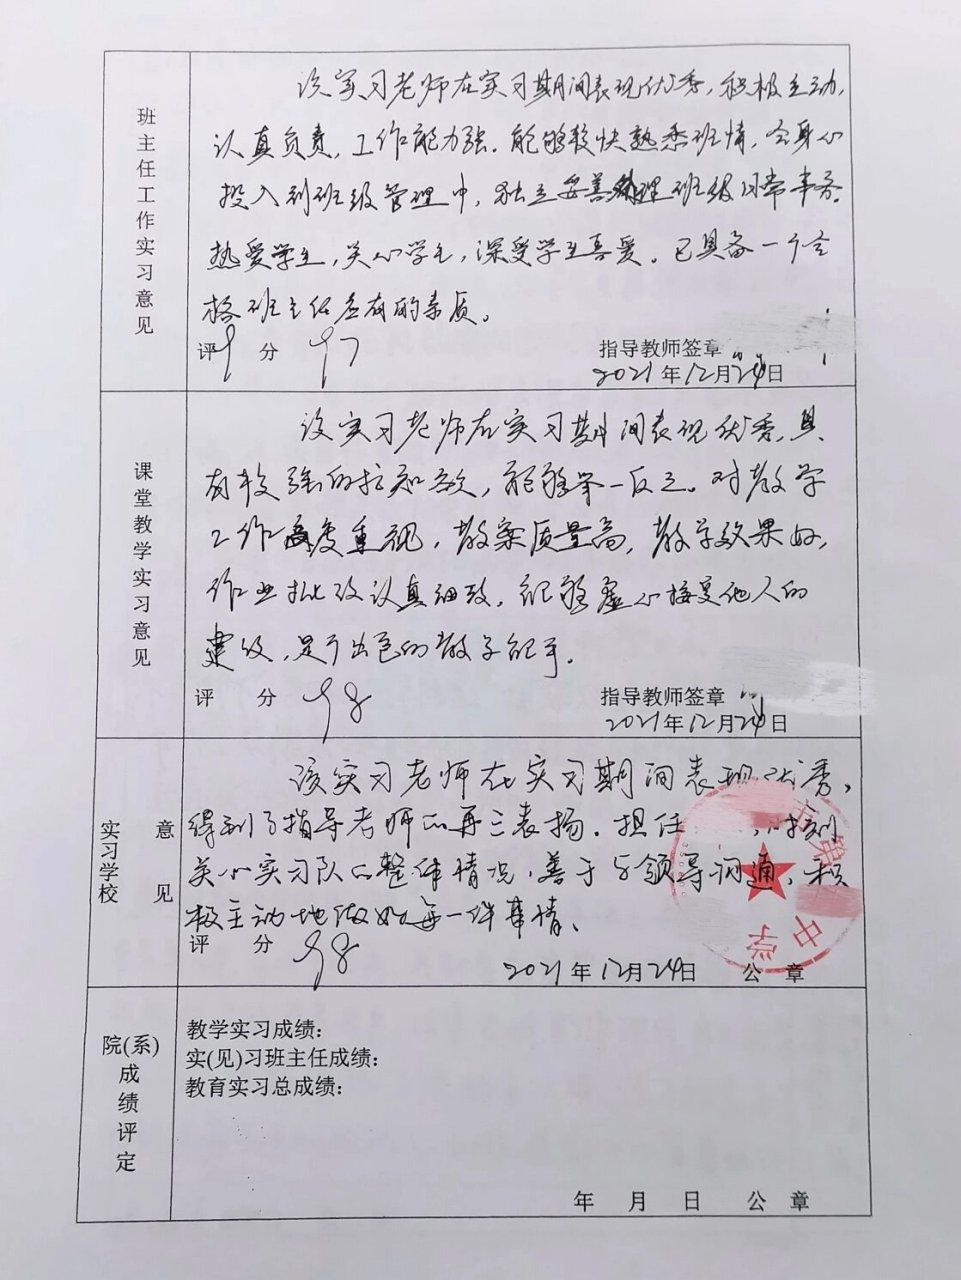 班主任工作实习意见
该实习老师在实习期间表现优秀，积极主动，
认真负责，工作能力强。能够较快熟悉班情，全身心
投入到班级管理中，独立妥善处理班级日常事务。
热爱学生，关心学生，深受学生喜爱。已具备一个合
格班主任应有的素质。
评 分 97
指导教师签章
2021年12月24日
课堂教学实习意见
该实习老师在实习期间表现优秀，具
有较强的求知欲，能够举一反三。对教学
工作高度重视，教案质量高，教学效果好，
作业批改认真细致，能够虚心接受他人的
建议，是个出色的教学能手。
评 分 98
指导教师签章
2021年12月24日
实习学校意见
该实习老师在实习期间表现优秀，
得到了指导老师的再三表扬。担任 ，时刻
关心实习队的整体情况，善于与领导沟通，积
极主动地做好每一件事情。
评 分 98
2021年12月24日 公 章
第 中学
院(系)成绩评定
教学实习成绩：
实(见)习班主任成绩：
教育实习总成绩：
年 月 日 公 章